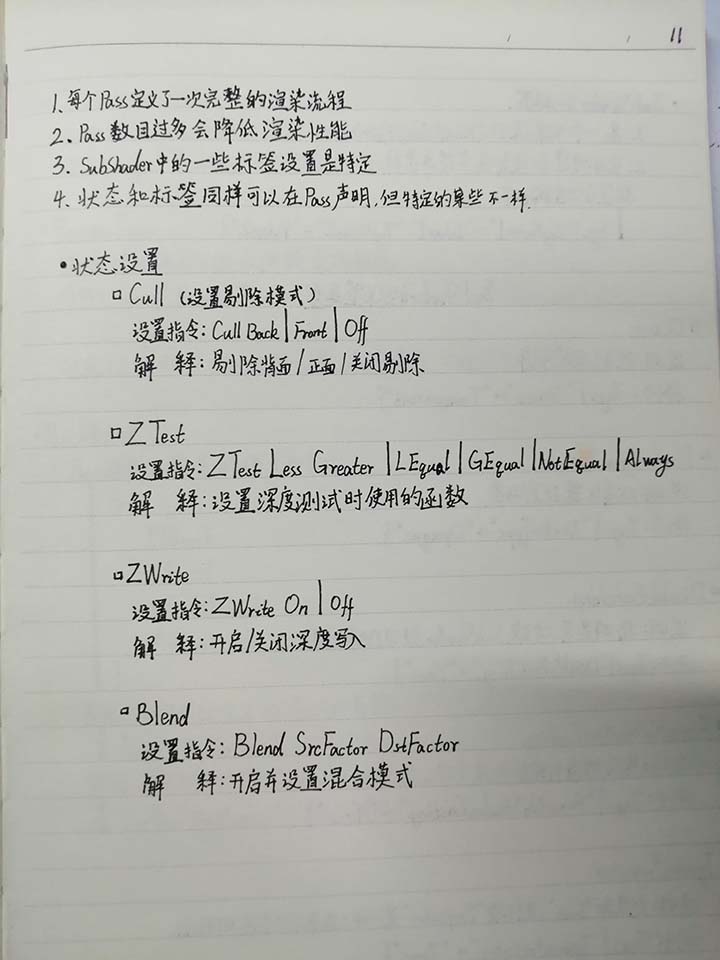 11
1、每个Pass定义了一次完整的渲染流程
2、Pass数目过多会降低渲染性能
3、SubShader中的一些标签设置是特定
4、状态和标签同样可以在Pass声明,但特定的某些不一样.
•状态设置
□ Cull (设置剔除模式)
设置指令:Cull Back|Front|Off
解 释:剔除背面/正面/关闭剔除
□ ZTest
设置指令:ZTest Less Greater|LEqual|GEqual|NotEqual|Always
解 释:设置深度测试时使用的函数
□ ZWrite
设置指令:ZWrite On|Off
解 释:开启/关闭深度写入
□ Blend
设置指令:Blend SrcFactor DstFactor
解 释:开启并设置混合模式